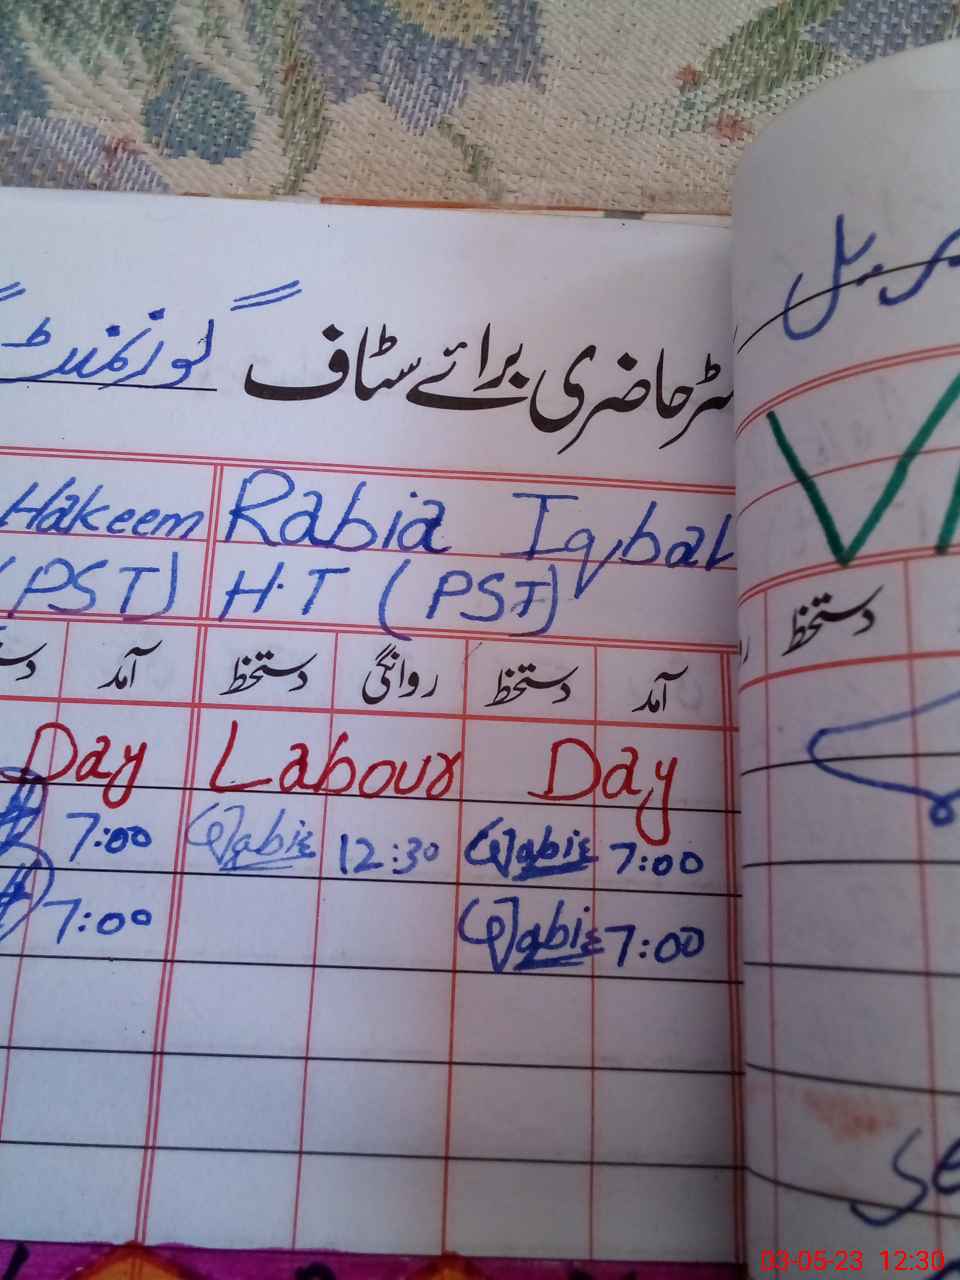 حاضری برائے سٹاف گورنمنٹ
Hakeem Rabia Iqbal
(PST) H.T (PST)
آمد دستخط روانگی دستخط آمد
دستخط
Day Labour Day
7:00 Rabia 12:30 Rabia 7:00
7:00 Rabia 7:00
03-05-23 12:30